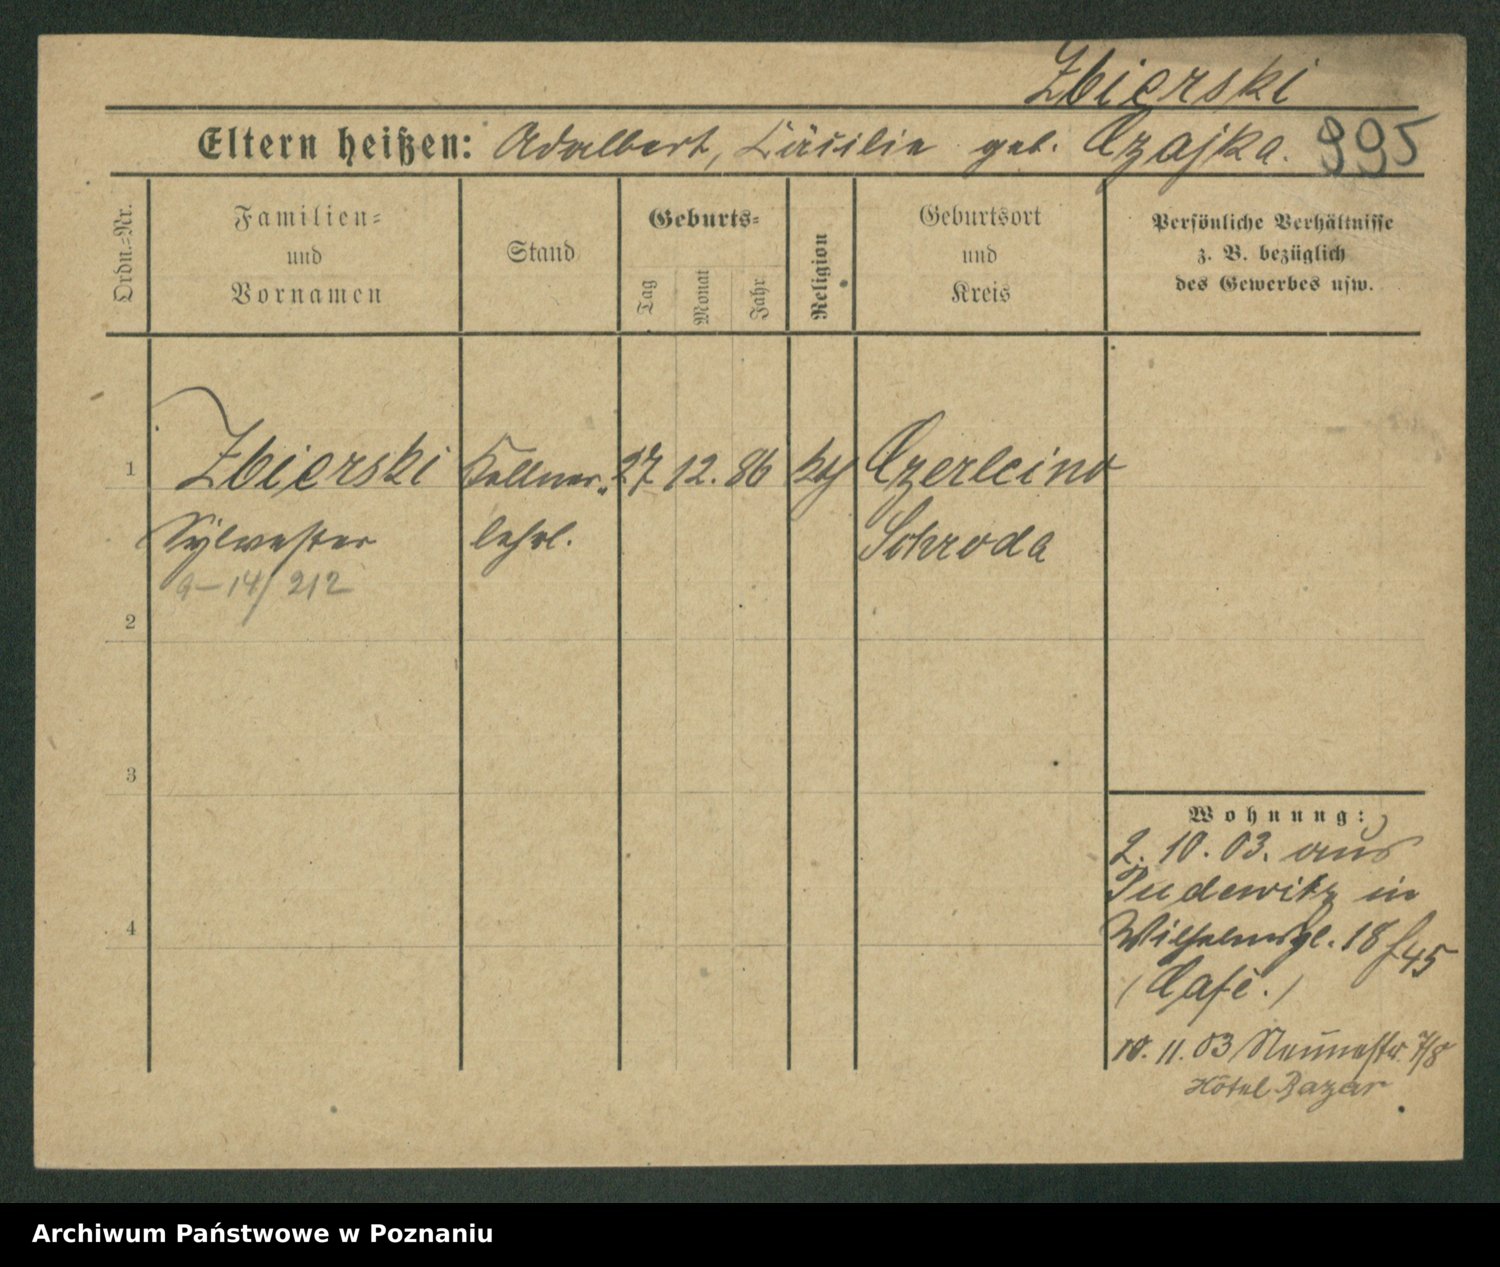 Zbierski
Eltern heißen: Adalbert, Cäcilie geb. Czajka. 995
Ordn.=Nr.
Familien=
und
Vornamen
Stand
Geburts=
Tag
Monat
Jahr
Religion
Geburtsort
und
Kreis
Persönliche Verhältnisse
z. B. bezüglich
des Gewerbes usw.
1 Zbierski Kellner= 27 12. 86 kth Czerleino
Sylvester lehrl. Schroda
a-14/212
2
3
4
Wohnung:
2. 10. 03. aus
Pudewitz in
Wilhelmspl. 18 f 45
(Café.)
10. 11. 03 Neuestr. 7/8
Hôtel Bazar
Archiwum Państwowe w Poznaniu